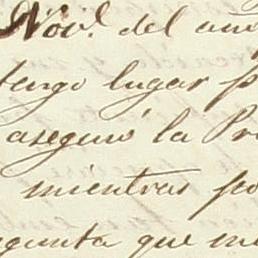 Nov.e del
tengo lugar p
aseguró la Pr
mientras po
egunta que me